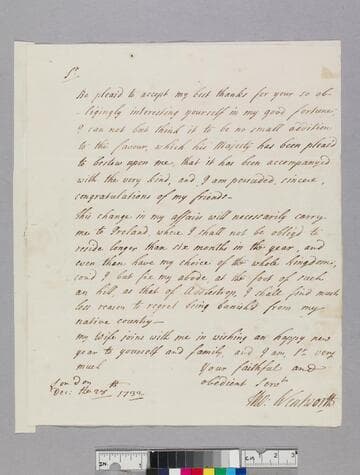 Sr.
Be pleasd to accept my best thanks for your so ob-
-ligingly interesting yourself in my good fortune,
I can not but think it to be no small addition
to the favour, which his Majesty has been pleasd
to bestow upon me, that it has been accompanyd
with the very kind, and, I am perswaded, sincere,
congratulations of my friends-
this change in my affairs will necessarily carry
me to Ireland, where I shall not be obligd to
reside longer than six months in the year, and
even then have my choice of the whole kingdome,
coud I but fix my abode at the foot of such
an hill, as that of I shall find much
less reason to regret being banishd from my
native country-
my wife joins with me in wishing an happy new
year to yourself and family, and I am, Sr. very
much your faithful and
obedient Servt
London
Dec: the 27th 1732
Tho: Wentworth